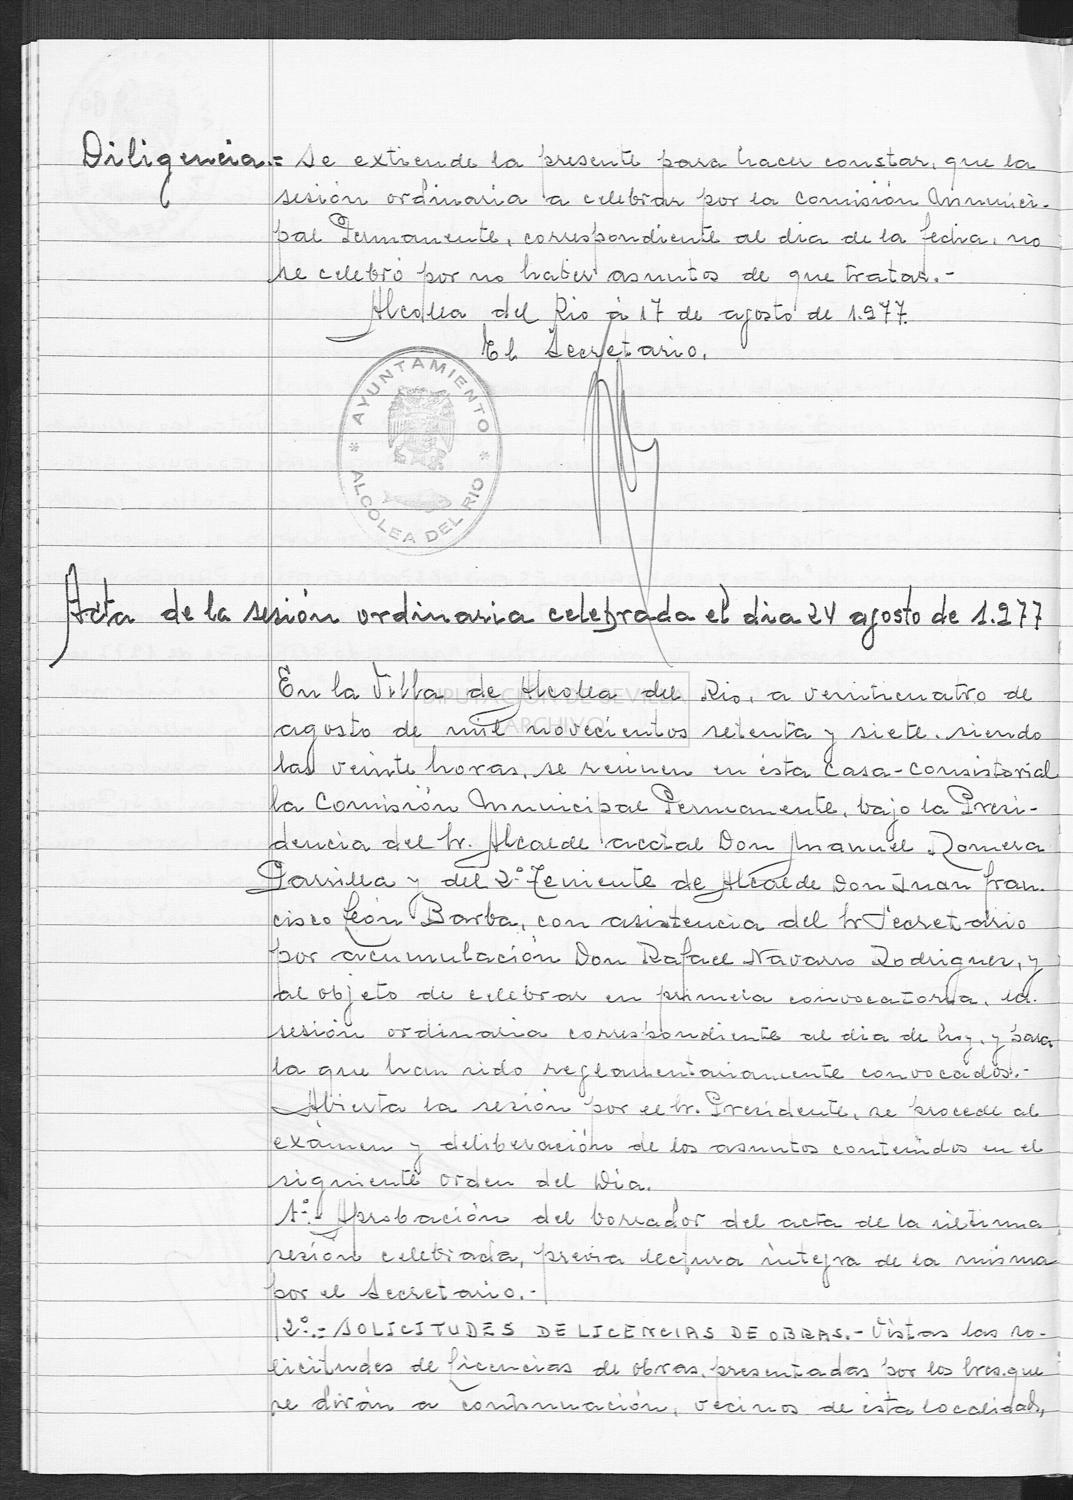 Diligencia.= Se extiende la presente para hacer constar, que la
sesión ordinaria a celebrar por la Comisión Munici-
pal Permanente, correspondiente al dia de la fecha, no
se celebró por no haber asuntos de que tratar.-
Alcolea del Rio á 17 de agosto de 1.977.
El Secretario,
* AYUNTAMIENTO *
ALCOLEA DEL RIO
Acta de la sesión ordinaria celebrada el dia 24 agosto de 1.977
En la Villa de Alcolea del Rio, a veinticuatro de
DIPUTACIÓN DE SEVILLA
ARCHIVO
agosto de mil novecientos setenta y siete, siendo
las veinte horas, se reunen en ésta Casa-Consistorial
la Comisión Municipal Permanente, bajo la Presi-
dencia del Sr. Alcalde acctal Don Manuel Romera
Parrilla y del 2º Teniente de Alcalde Don Juan Fran-
cisco León Barba, con asistencia del Sr Secretario
por acumulación Don Rafael Navarro Rodriguez, y
al objeto de celebrar en primera convocatoria, la
sesión ordinaria correspondiente al dia de hoy, y para
la que han sido reglamentariamente convocados.-
Abierta la sesión por el Sr. Presidente, se procede al
exámen y deliberación de los asuntos contenidos en el
siguiente Orden del Dia.
1º.- Aprobación del borrador del acta de la ultima
sesión celebrada, previa lectura íntegra de la misma
por el Secretario.-
2º.- SOLICITUDES DE LICENCIAS DE OBRAS.- Vistas las so-
licitudes de licencias de obras, presentadas por los Sres. que
se dirán a continuación, vecinos de ésta localidad,